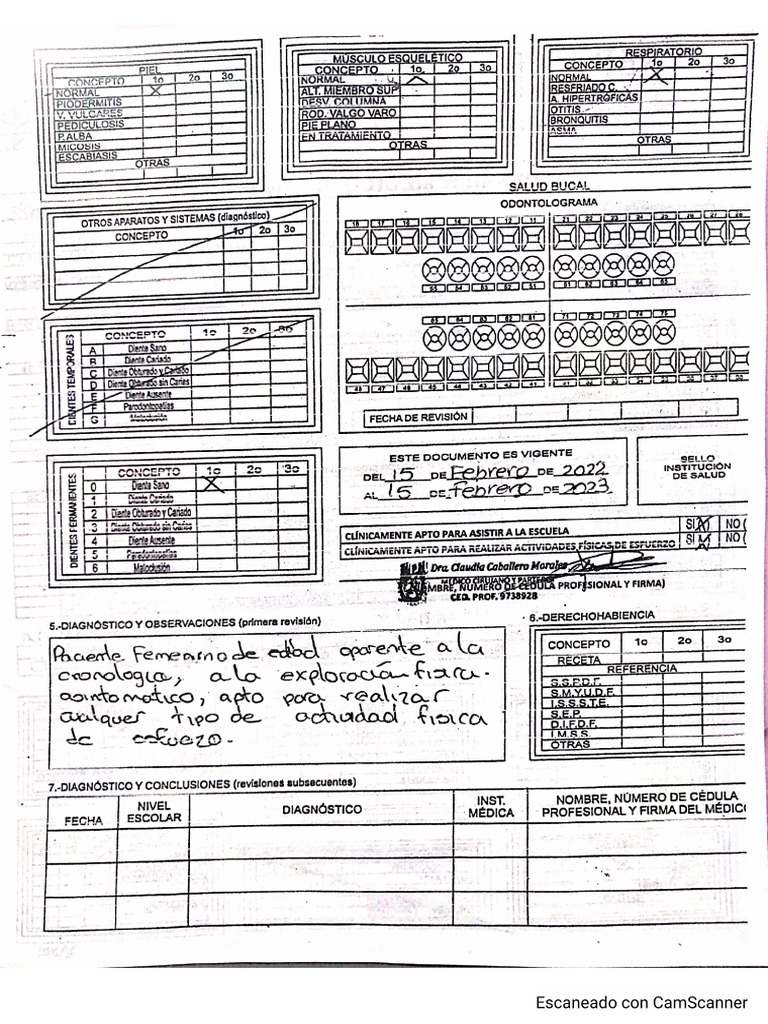 PIEL
CONCEPTO 1o 2o 3o
NORMAL X
PIODERMITIS
V. VULGARES
PEDICULOSIS
P. ALBA
MICOSIS
ESCABIASIS
OTRAS
MÚSCULO ESQUELÉTICO
CONCEPTO 1o 2o 3o
NORMAL
ALT. MIEMBRO SUP
DESV. COLUMNA
ROD. VALGO VARO
PIE PLANO
EN TRATAMIENTO
OTRAS
RESPIRATORIO
CONCEPTO 1o 2o 3o
NORMAL X
RESFRIADO C.
A. HIPERTRÓFICAS
OTITIS
BRONQUITIS
ASMA
OTRAS
OTROS APARATOS Y SISTEMAS (diagnóstico)
CONCEPTO 1o 2o 3o
SALUD BUCAL
ODONTOLOGRAMA
18 17 16 15 14 13 12 11 21 22 23 24 25 26 27 28
55 54 53 52 51 61 62 63 64 65
85 84 83 82 81 71 72 73 74 75
48 47 46 45 44 43 42 41 31 32 33 34 35 36 37 38
FECHA DE REVISIÓN
DIENTES TEMPORALES
CONCEPTO 1o 2o 3o
A Diente Sano
B Diente Cariado
C Diente Obturado y Cariado
D Diente Obturado sin Caries
E Diente Ausente
F Parodontopatías
G Maloclusión
DIENTES PERMANENTES
CONCEPTO 1o 2o 3o
0 Diente Sano X
1 Diente Cariado
2 Diente Obturado y Cariado
3 Diente Obturado sin Caries
4 Diente Ausente
5 Parodontopatías
6 Maloclusión
ESTE DOCUMENTO ES VIGENTE
DEL 15 DE Febrero DE 2022
AL 15 DE Febrero DE 2023
SELLO
INSTITUCIÓN
DE SALUD
CLÍNICAMENTE APTO PARA ASISTIR A LA ESCUELA SI (X) NO (
CLÍNICAMENTE APTO PARA REALIZAR ACTIVIDADES FÍSICAS DE ESFUERZO SI (X) NO (
Dra. Claudia Caballero Morales
MÉDICO CIRUJANO Y PARTERO
MBRE, NÚMERO DE CÉDULA PROFESIONAL Y FIRMA)
CED. PROF. 9738928
5.-DIAGNÓSTICO Y OBSERVACIONES (primera revisión)
Paciente Femenino de edad aparente a la
cronologia, a la exploración fisica.
asintomatico, apto para realizar
cualquer tipo de actividad fisica
de esfuerzo.
6.-DERECHOHABIENCIA
CONCEPTO 1o 2o 3o
RECETA
REFERENCIA
S.S.P.D.F.
S.M.Y.U.D.F.
I.S.S.S.T.E.
S.E.P.
D.I.F.D.F.
I.M.S.S.
OTRAS
7.-DIAGNÓSTICO Y CONCLUSIONES (revisiones subsecuentes)
FECHA
NIVEL ESCOLAR
DIAGNÓSTICO
INST. MÉDICA
NOMBRE, NÚMERO DE CÉDULA
PROFESIONAL Y FIRMA DEL MÉDICO
Escaneado con CamScanner